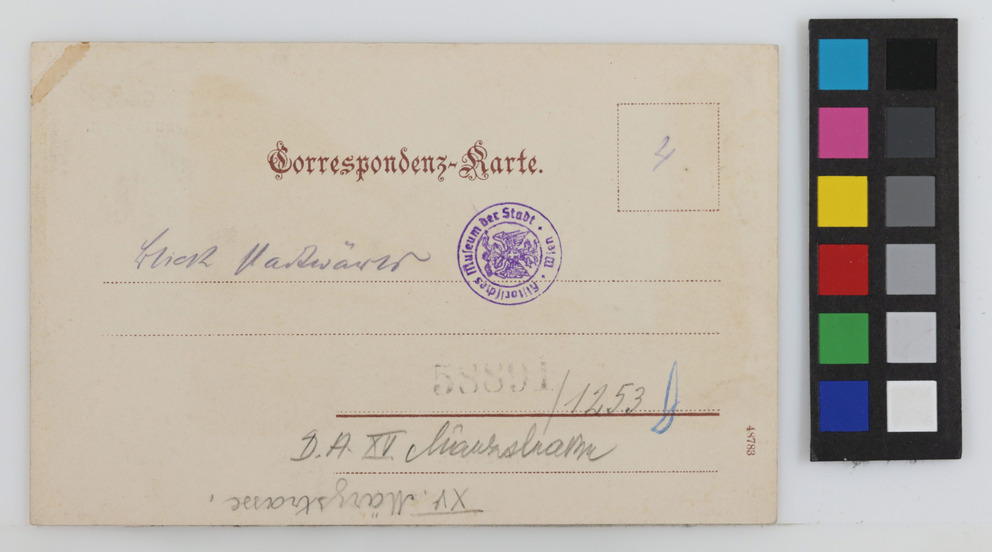 Correspondenz-Karte.
4
Blick stadtwärts
Historisches Museum der Stadt Wien
16885
/1253
D.A. XV. Märzstrasse
48783
XV. Märzstrasse.